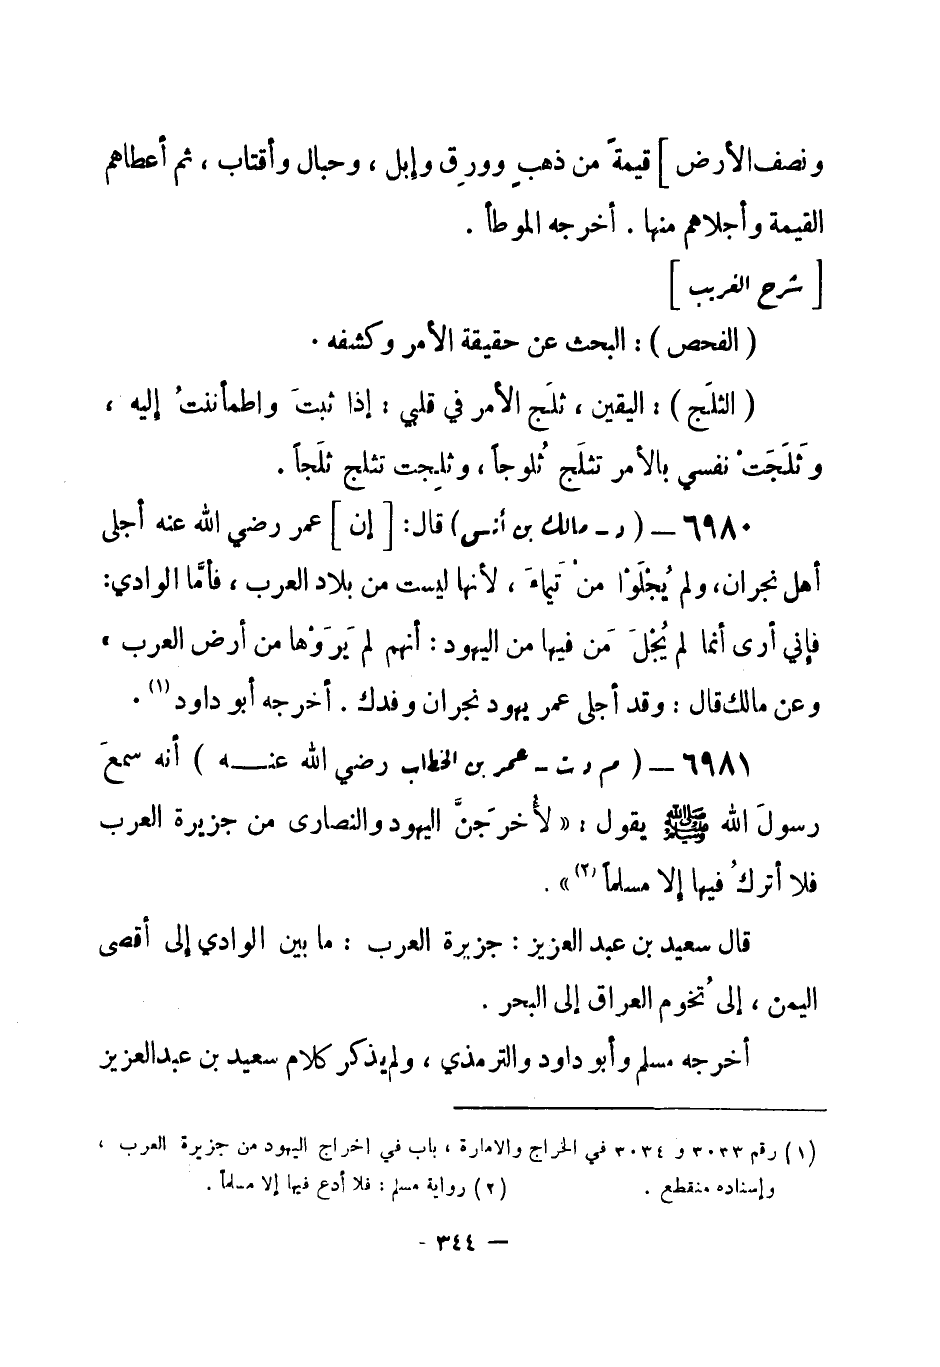 ونصف الأرض ] قيمةً من ذهبٍ وورِق وإبل ، وحبال وأقتاب ، ثم أعطاهم
القيمة وأجلاهم منها . أخرجه الموطأ .
[ شرح الغريب ]
( الفحص ) : البحث عن حقيقة الأمر وكشفه .
( الثلَج ) : اليقين ، ثلَج الأمر في قلبي : إذا ثبتَ واطمأننتُ إليه ،
وَثلَجَتْ نفسي بالأمر تثلَج ثُلوجاً ، وثلِجت تثلج ثلَجاً .
٦٩٨٠ — ( د - مالك بن أنس ) قال : [ إن ] عمر رضي الله عنه أجلى
أهل نجران، ولم يُجْلَوْا منْ تَيماءَ ، لأنها ليست من بلاد العرب ، فأمَّا الوادي :
فإني أرى أنما لم يُجْلَ مَن فيها من اليهود : أنهم لم يَرَوْها من أرض العرب ،
وعن مالك قال : وقد أجلى عمر يهود نجران وفدك . أخرجه أبو داود (١) .
٦٩٨١ — ( م د ت - عمر بن الخطاب رضي الله عنـــه ) أنه سمعَ
رسولَ الله ﷺ يقول : « لأُخرجَنَّ اليهود والنصارى من جزيرة العرب
فلا أتركُ فيها إلا مسلماً (٢) » .
قال سعيد بن عبد العزيز : جزيرة العرب : ما بين الوادي إلى أقصى
اليمن ، إلى تُخوم العراق إلى البحر .
أخرجه مسلم وأبو داود والترمذي ، ولم يذكر كلام سعيد بن عبد العزيز
(١) رقم ٣٠٣٣ و ٣٠٣٤ في الخراج والامارة ، باب في اخراج اليهود من جزيرة العرب ،
وإسناده منقطع . (٢) رواية مسلم : فلا أدع فيها إلا مسلماً .
— ٣٤٤ -